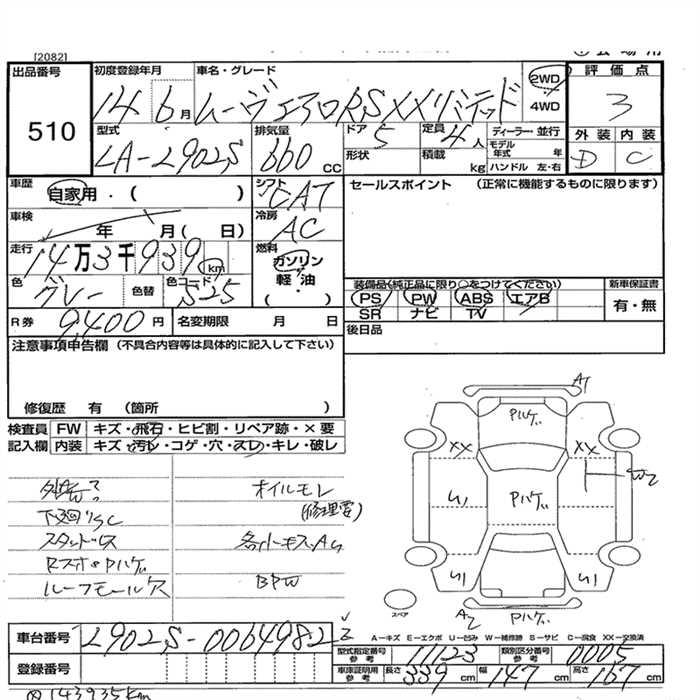 [2082]
出品番号
510
初度登録年月
14 6月
車名・グレード
ムーヴ エアロRS XXリミテッド
2WD
4WD
評価点
3
外装 内装
D C
型式
LA-L902S
排気量
660 cc
ドア 5
形状
定員 4人
積載 kg
ディーラー・並行
モデル年式 年
ハンドル 左・右
車歴
自家用・( )
車検
年 月( 日)
走行
14万3千939km
色
グレー
色替
色コード
S25
シフト
CAT
冷房
AC
燃料
ガソリン
軽油
( )
セールスポイント (正常に機能するものに限ります)
装備品(純正品に限り○をつけてください)
PS PW ABS エアB
SR ナビ TV
新車保証書
有・無
後日品
R券 9,400円
名変期限 月 日
注意事項申告欄 (不具合内容等は具体的に記入して下さい)
修復歴 有 (箇所 )
検査員 FW キズ・飛石・ヒビ割・リペア跡・×要
記入欄 内装 キズ・汚レ・コゲ・穴・スレ・キレ・破レ
オイルモレ
(修理要)
下廻りSC
スタッドレス
各小キズAC
RスポPハゲ
ルーフモール穴
BPW
A1
Pハゲ
XX XX
W2
U1
Pハゲ
U1 U1
スペア
A2
Pハゲ
A-キズ E-エクボ U-凹み W-補修跡 S-サビ C-腐食 XX-交換済
車台番号
L902S-0064982
型式指定番号 参考
11123
類別区分番号 参考
0005
登録番号
車庫証明用 参考
長さ 339cm
幅 147cm
高さ 167cm
143935km